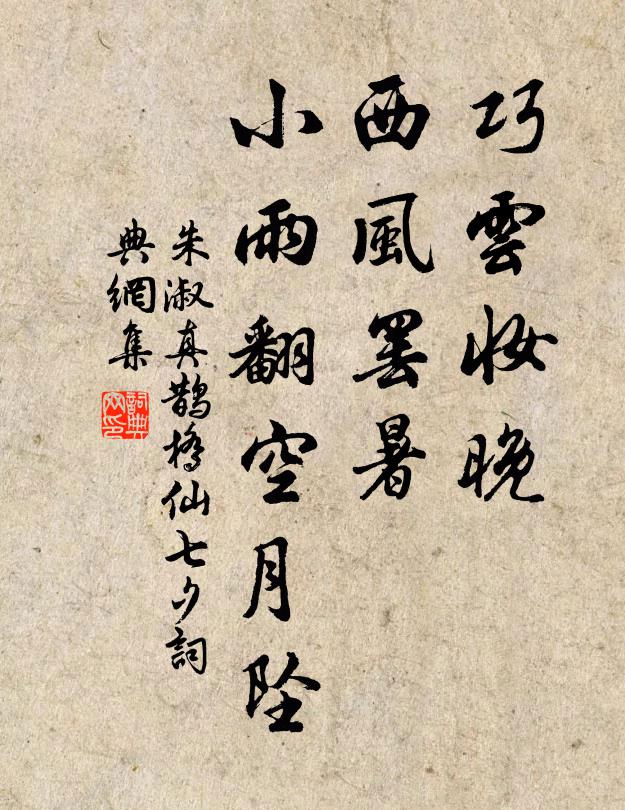 巧雲妝晚
西風罷暑
小雨翻空月墜
朱淑真鵲橋仙七夕詞
典網集
詞典网印